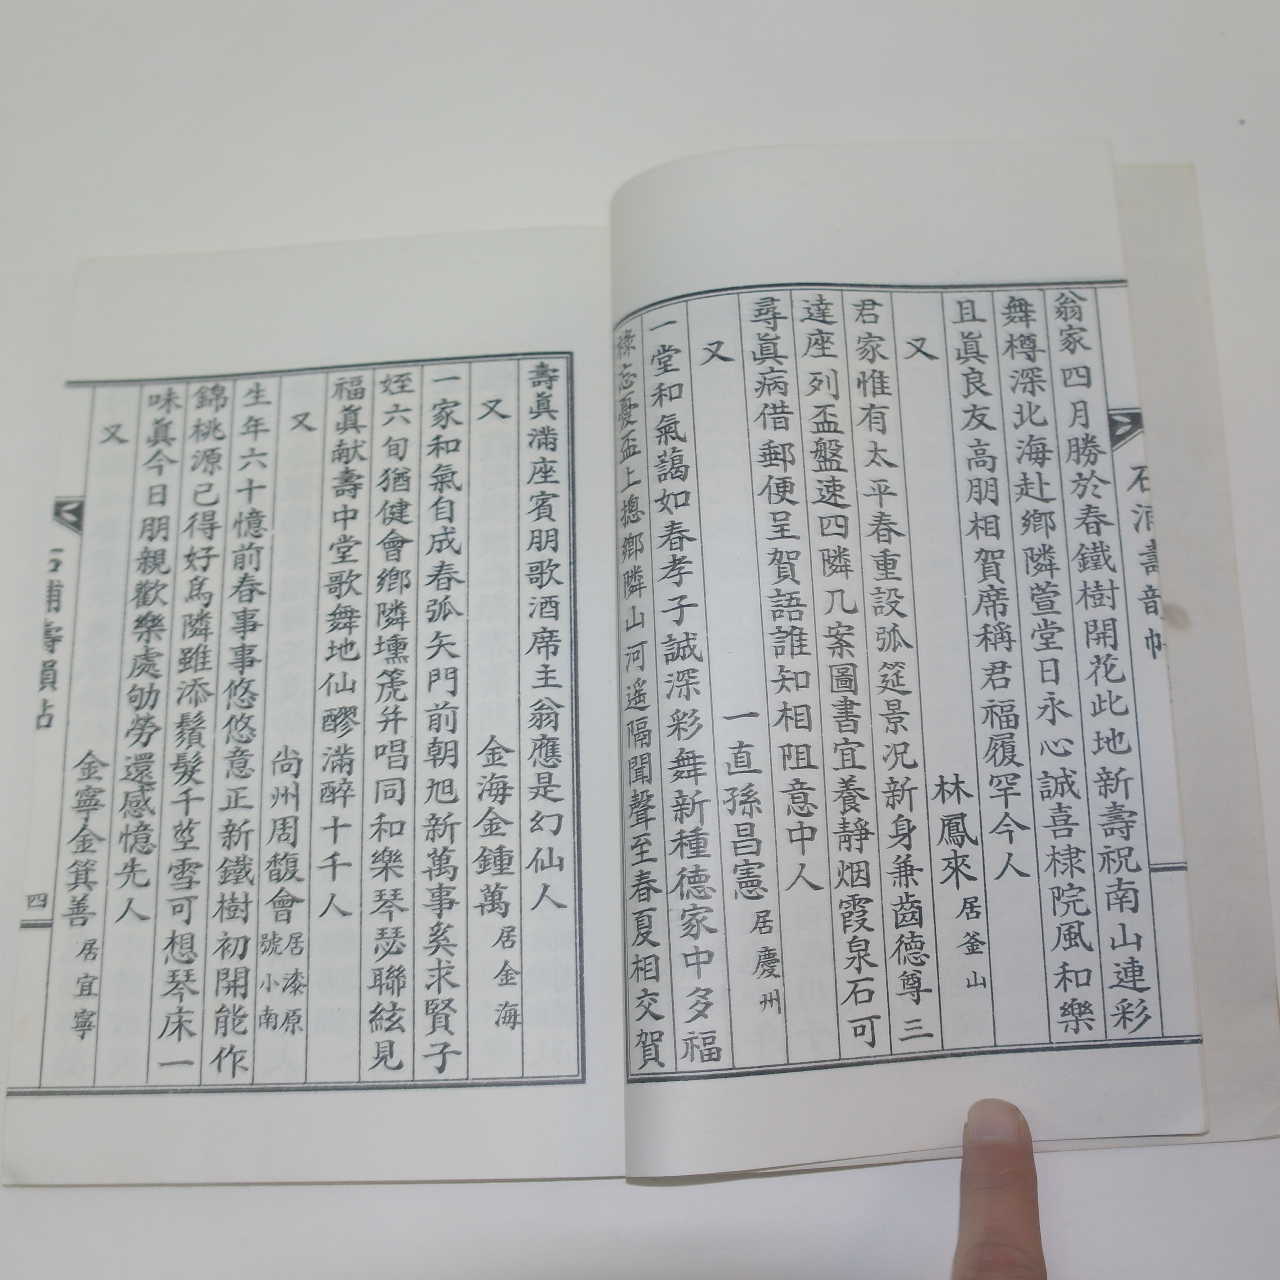 壽韻帖
翁家四月勝於春鐵樹開花此地新壽祝南山連彩
舞樽深北海赴鄉隣萱堂日永心誠喜棣院風和樂
且眞良友高朋相賀席稱君福履罕今人
又 林鳳來 居釜山
君家惟有太平春重設弧筵景况新身兼齒德尊三
達座列盃盤速四隣几案圖書宜養靜烟霞泉石可
尋眞病借郵便呈賀語誰知相阻意中人
又 一直孫昌憲 居慶州
一堂和氣藹如春孝子誠深彩舞新種德家中多福
祿忘憂盃上摠鄉隣山河遙隔聞聲至春夏相交賀
壽眞滿座賓朋歌酒席主翁應是幻仙人
又 金海金鍾萬 居金海
一家和氣自成春弧矢門前朝旭新萬事奚求賢子
姪六旬猶健會鄉隣壎箎并唱同和樂琴瑟聯絃見
福眞献壽中堂歌舞地仙醪滿醉十千人
又 尙州周馥會 居漆原 號小南
生年六十憶前春事事悠悠意正新鐵樹初開能作
錦桃源已得好爲隣雖添鬚髮千莖雪可想琴床一
味眞今日朋親歡樂處劬勞還感憶先人
又 金寧金箕善 居宜寧
壽韻帖
四